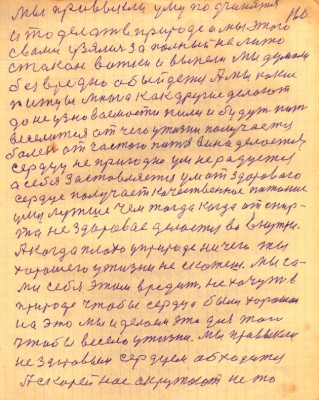 Мы привыкли уму подчинятся 166
и то делать в природе а мы этого
сами взяли за полный налито
стакан водки и выпели мы думали
безвредно обойдется А мы какие
живем много как другие делают
до не узноваемости пили и будут пить
веселится от чего у жизни получается
болен от частого пить Вина делается
сердцу не пригодно ум не радуется
а себя заставляется ум от здорового
сердце получает качественное питание
ума лутше чем тогда когда от спир-
та не здоровае делается во внутри.
А когда плохо у природе ничего ты
хорошего у жизни не скажеш. Мы са-
ми себя этим вредим, не хочут в
природе чтобы сердце были хорошаи
на это мы и делаем это для того
чтобы весело у жизни. Мы привыкли
не здоровым сердцем обходится
А скорей нас окружают не то